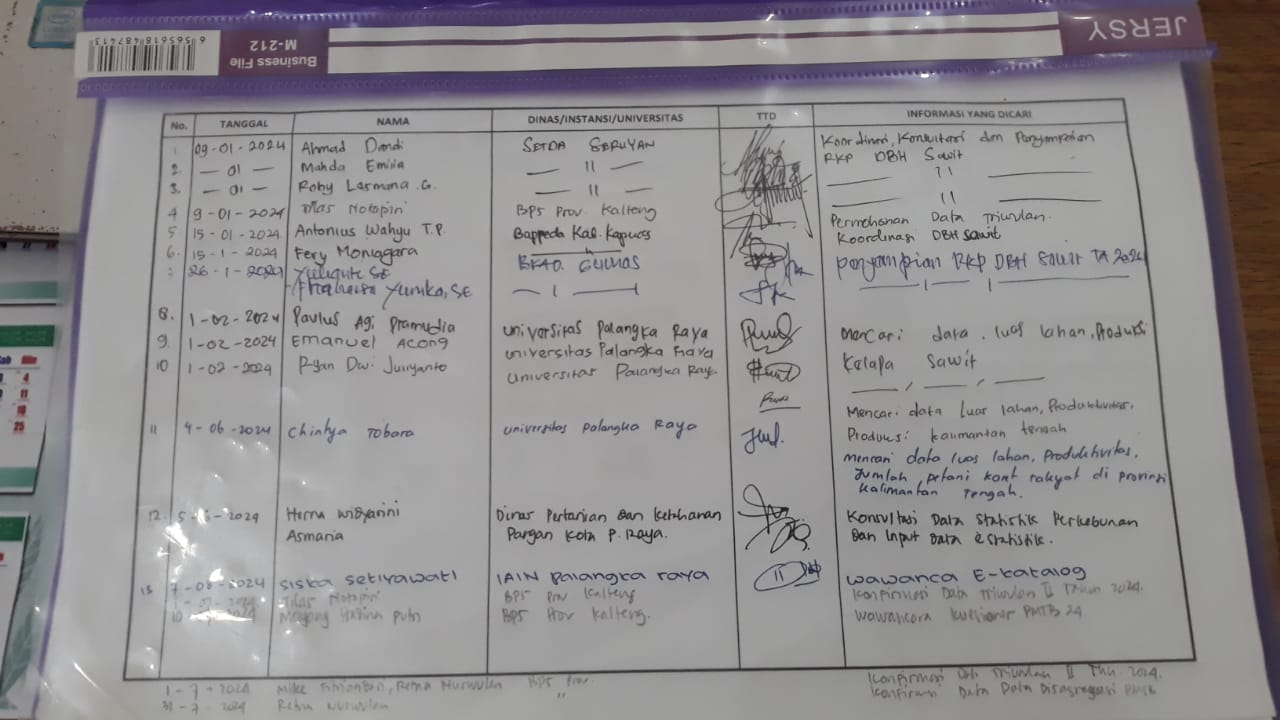 JERSY
Business File
M-212
6 565618 487413
No. TANGGAL NAMA DINAS/INSTANSI/UNIVERSITAS TTD INFORMASI YANG DICARI
1 09-01-2024 Ahmad Dandi SETDA SERUYAN Koordinasi, Konsultasi dan Penyampaian
RKP DBH Sawit
2. — 01 — Mahda Emilia — 11 — — 11 —
3. — 01 — Roby Lasmana .G. — 11 — — 11 —
4 9-01-2024 Notapiri BPS Prov Kalteng Permohonan Data Triwulan.
5 15-01-2024 Antonius Wahyu T.P. Bappeda Kab. Kapuas Koordinasi DBH Sawit
6. 15-1-2024 Fery Moniagara
26-1-2024 SE GUMAS Penyampaian RKP DBH Sawit TA 2024
Yunika, SE
8. 1-02-2024 Paulus Agi Pramudia Universitas Palangka Raya Mencari data, luas lahan, Produksi
9. 1-02-2024 Emanuel Acong Universitas Palangka Raya Kelapa Sawit
10 1-02-2024 Ryan Dwi Juliyanto Universitas Palangka Raya
Mencari data Luas lahan, Produktivitas,
11 4-06-2024 Chintya Tobara Universitas Palangka Raya Produksi Kalimantan tengah
mencari data luas lahan, Produktivitas,
Jumlah petani karet rakyat di provinsi
Kalimantan Tengah.
12. 2024 Herna Widyarini Dinas Pertanian Dan Ketahanan Konsultasi Data Statistik Perkebunan
Asmaria Pangan Kota P. Raya. Dan Input Data eStatistik.
13 7-06-2024 Siska Setiyawati IAIN Palangka raya wawanca E-katalog
Notapiri BPS Prov Kalteng Konfirmasi Data Triwulan II Tahun 2024.
10 2024 Putri BPS Prov Kalteng. Wawancara Kuesioner PMTB 24
1-7-2024 Retna Nurwulan BPS Prov. Konfirmasi Data Triwulan II Thn. 2024.
31-7-2024 Retna Nurwulan " Konfirmasi Data Data Disagregasi PMTB